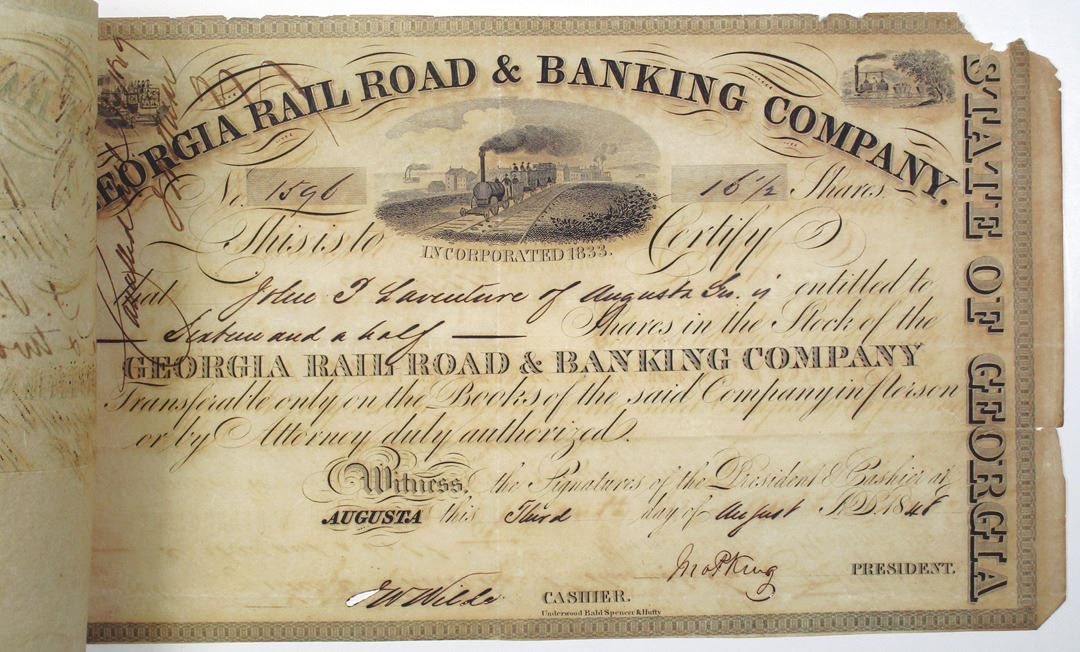 GEORGIA RAIL ROAD & BANKING COMPANY.
STATE OF GEORGIA
No. 1596
16 1/2 Shares.
INCORPORATED 1833.
This is to Certify
that John T Laventure of Augusta Ga. is entitled to
Sixteen and a half Shares in the Stock of the
GEORGIA RAIL ROAD & BANKING COMPANY
Transferable only on the Books of the said Company in person
or by Attorney duly authorized.
Witness, the Signatures of the President & Cashier at
AUGUSTA this Third day of August A.D. 1848
Jno P King PRESIDENT.
J W Wilde CASHIER.
Underwood Bald Spencer & Hufty
Cancelled